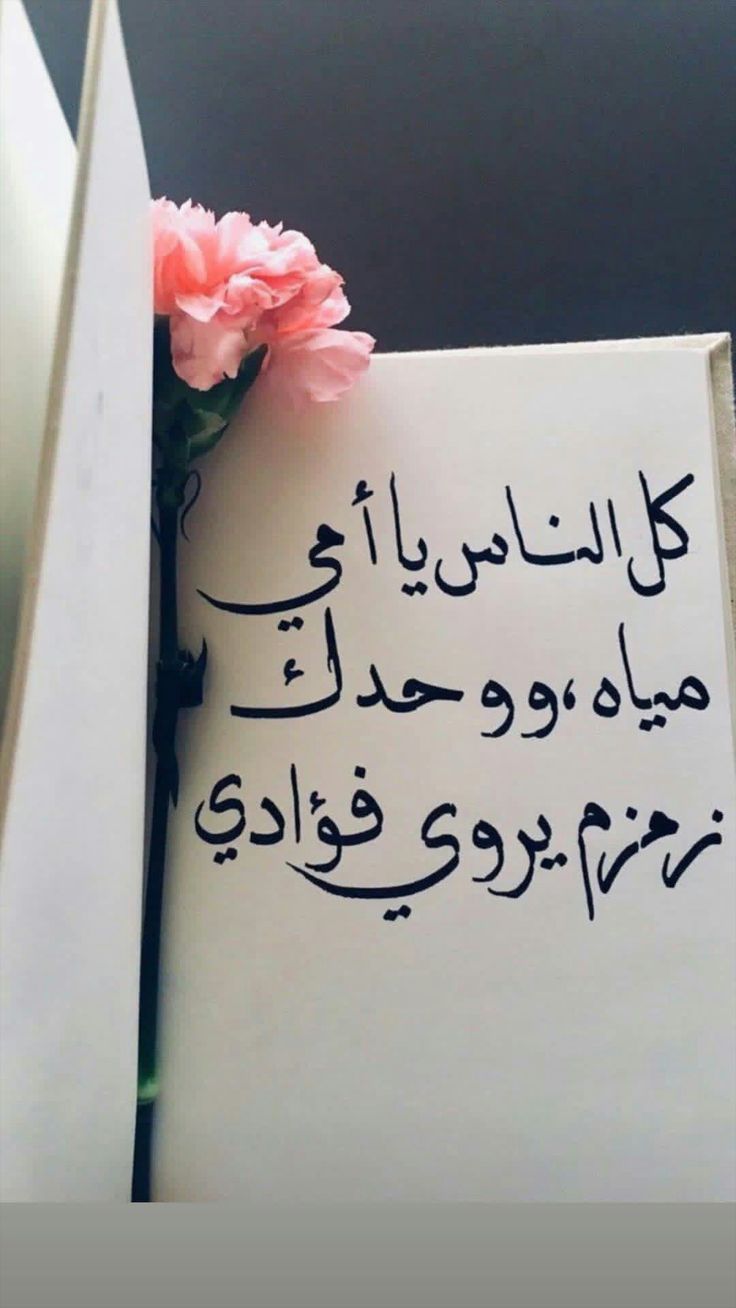 كل الناس يا أمي
مياه ،ووحدك
زمزم يروي فؤادي